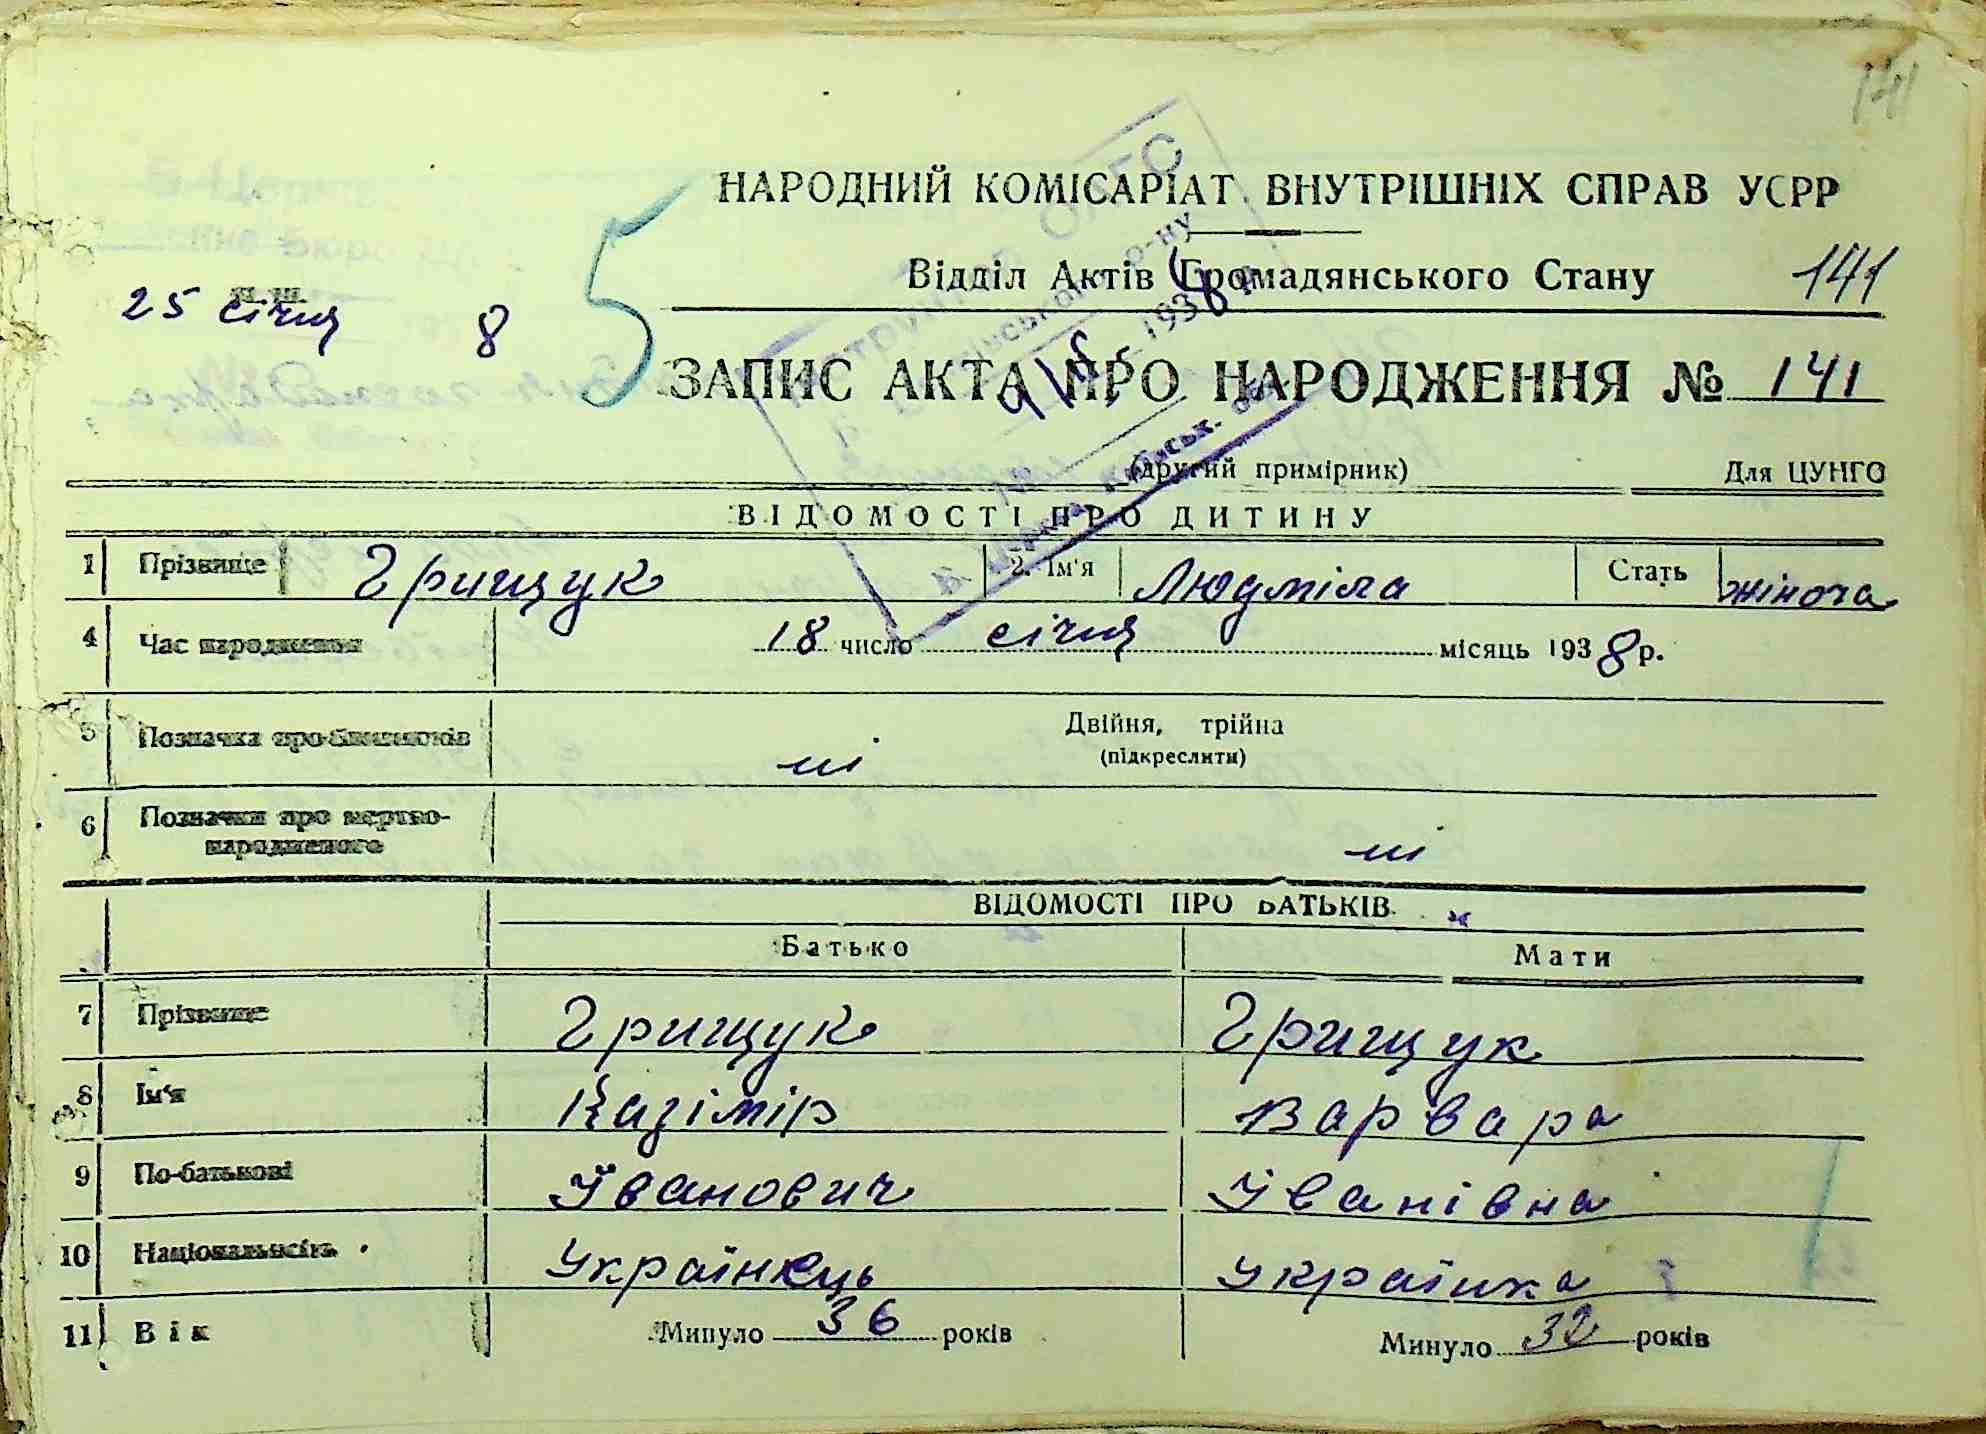 141
НАРОДНИЙ КОМІСАРІАТ ВНУТРІШНІХ СПРАВ УСРР
Відділ Актів Громадянського Стану 141
25 січня 8 5
ЗАПИС АКТА ПРО НАРОДЖЕННЯ № 141
(другий примірник) Для ЦУНГО
ВІДОМОСТІ ПРО ДИТИНУ
1 Прізвище Грищук 2. Ім'я Людміла Стать жіноча
4 Час народження 18 число січня місяць 1938 р.
5 Позначка про близнюків ні Двійня, трійна
(підкреслити)
6 Позначки про мертво-
народженого ні
ВІДОМОСТІ ПРО БАТЬКІВ
Батько Мати
7 Прізвище Грищук Грищук
8 Ім'я Казімір Варвара
9 По-батькові Іванович Іванівна
10 Національність Українець Українка
11 Вік Минуло 36 років Минуло 32 років